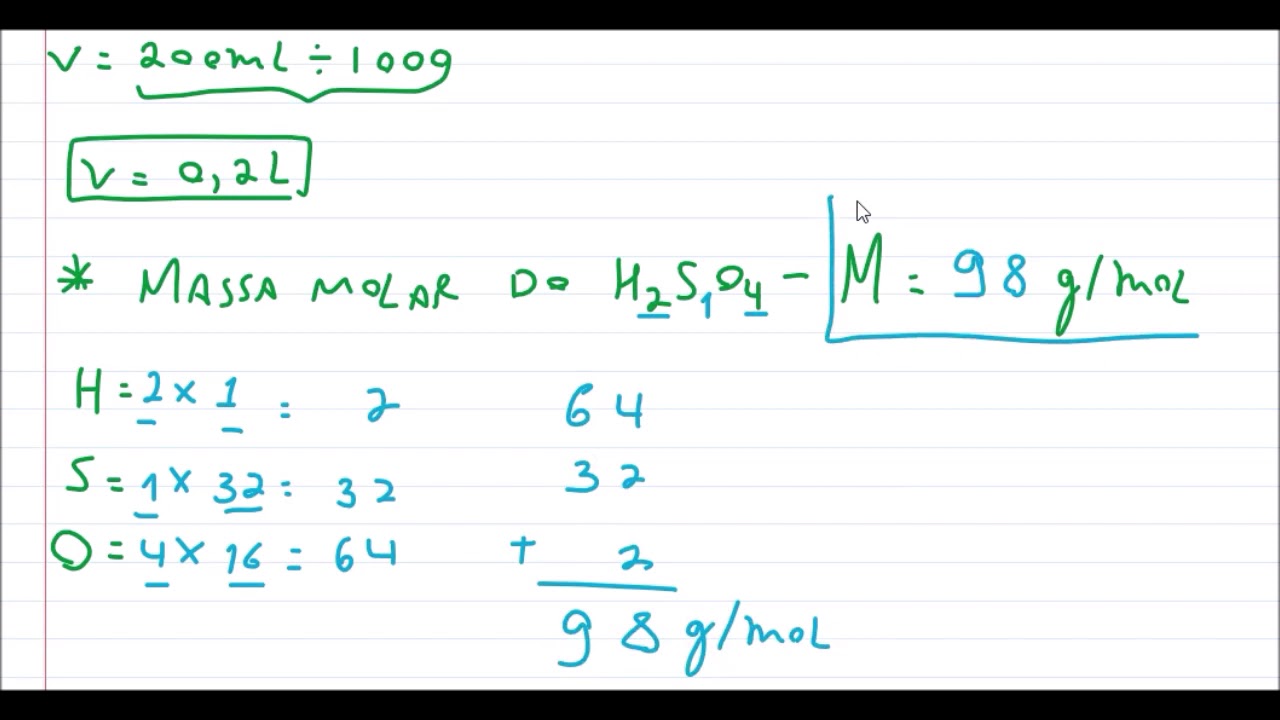 V = 200mL ÷ 1009
V = 0,2L
* MASSA MOLAR DO H2S1O4 - M = 98 g/mol
H = 2 x 1 = 2 64
S = 1 x 32 = 32 32
O = 4 x 16 = 64 + 2
98 g/mol